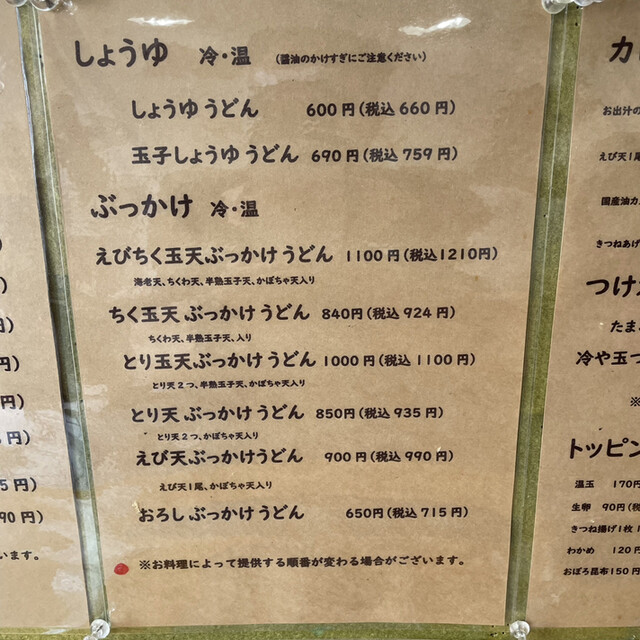 しょうゆ 冷・温 (醤油のかけすぎにご注意ください)
しょうゆうどん 600円(税込660円)
玉子しょうゆうどん 690円(税込759円)
ぶっかけ 冷・温
えびちく玉天ぶっかけうどん 1100円(税込1210円)
海老天、ちくわ天、半熟玉子天、かぼちゃ天入り
ちく玉天ぶっかけうどん 840円(税込924円)
ちくわ天、半熟玉子天、入り
とり玉天ぶっかけうどん 1000円(税込1100円)
とり天2つ、半熟玉子天、かぼちゃ天入り
とり天ぶっかけうどん 850円(税込935円)
とり天2つ、かぼちゃ天入り
えび天ぶっかけうどん 900円(税込990円)
えび天1尾、かぼちゃ天入り
おろしぶっかけうどん 650円(税込715円)
※お料理によって提供する順番が変わる場合がございます。
)
)
円)
円)
円)
円)
5円)
90円)
います。
カ
お出汁の
えび天1尾
国産油カ
きつねあげ
つけ
たま
冷や玉つ
※
トッピン
温玉 170円
生卵 90円(税
きつね揚げ1枚1
わかめ 120円
おぼろ昆布150円